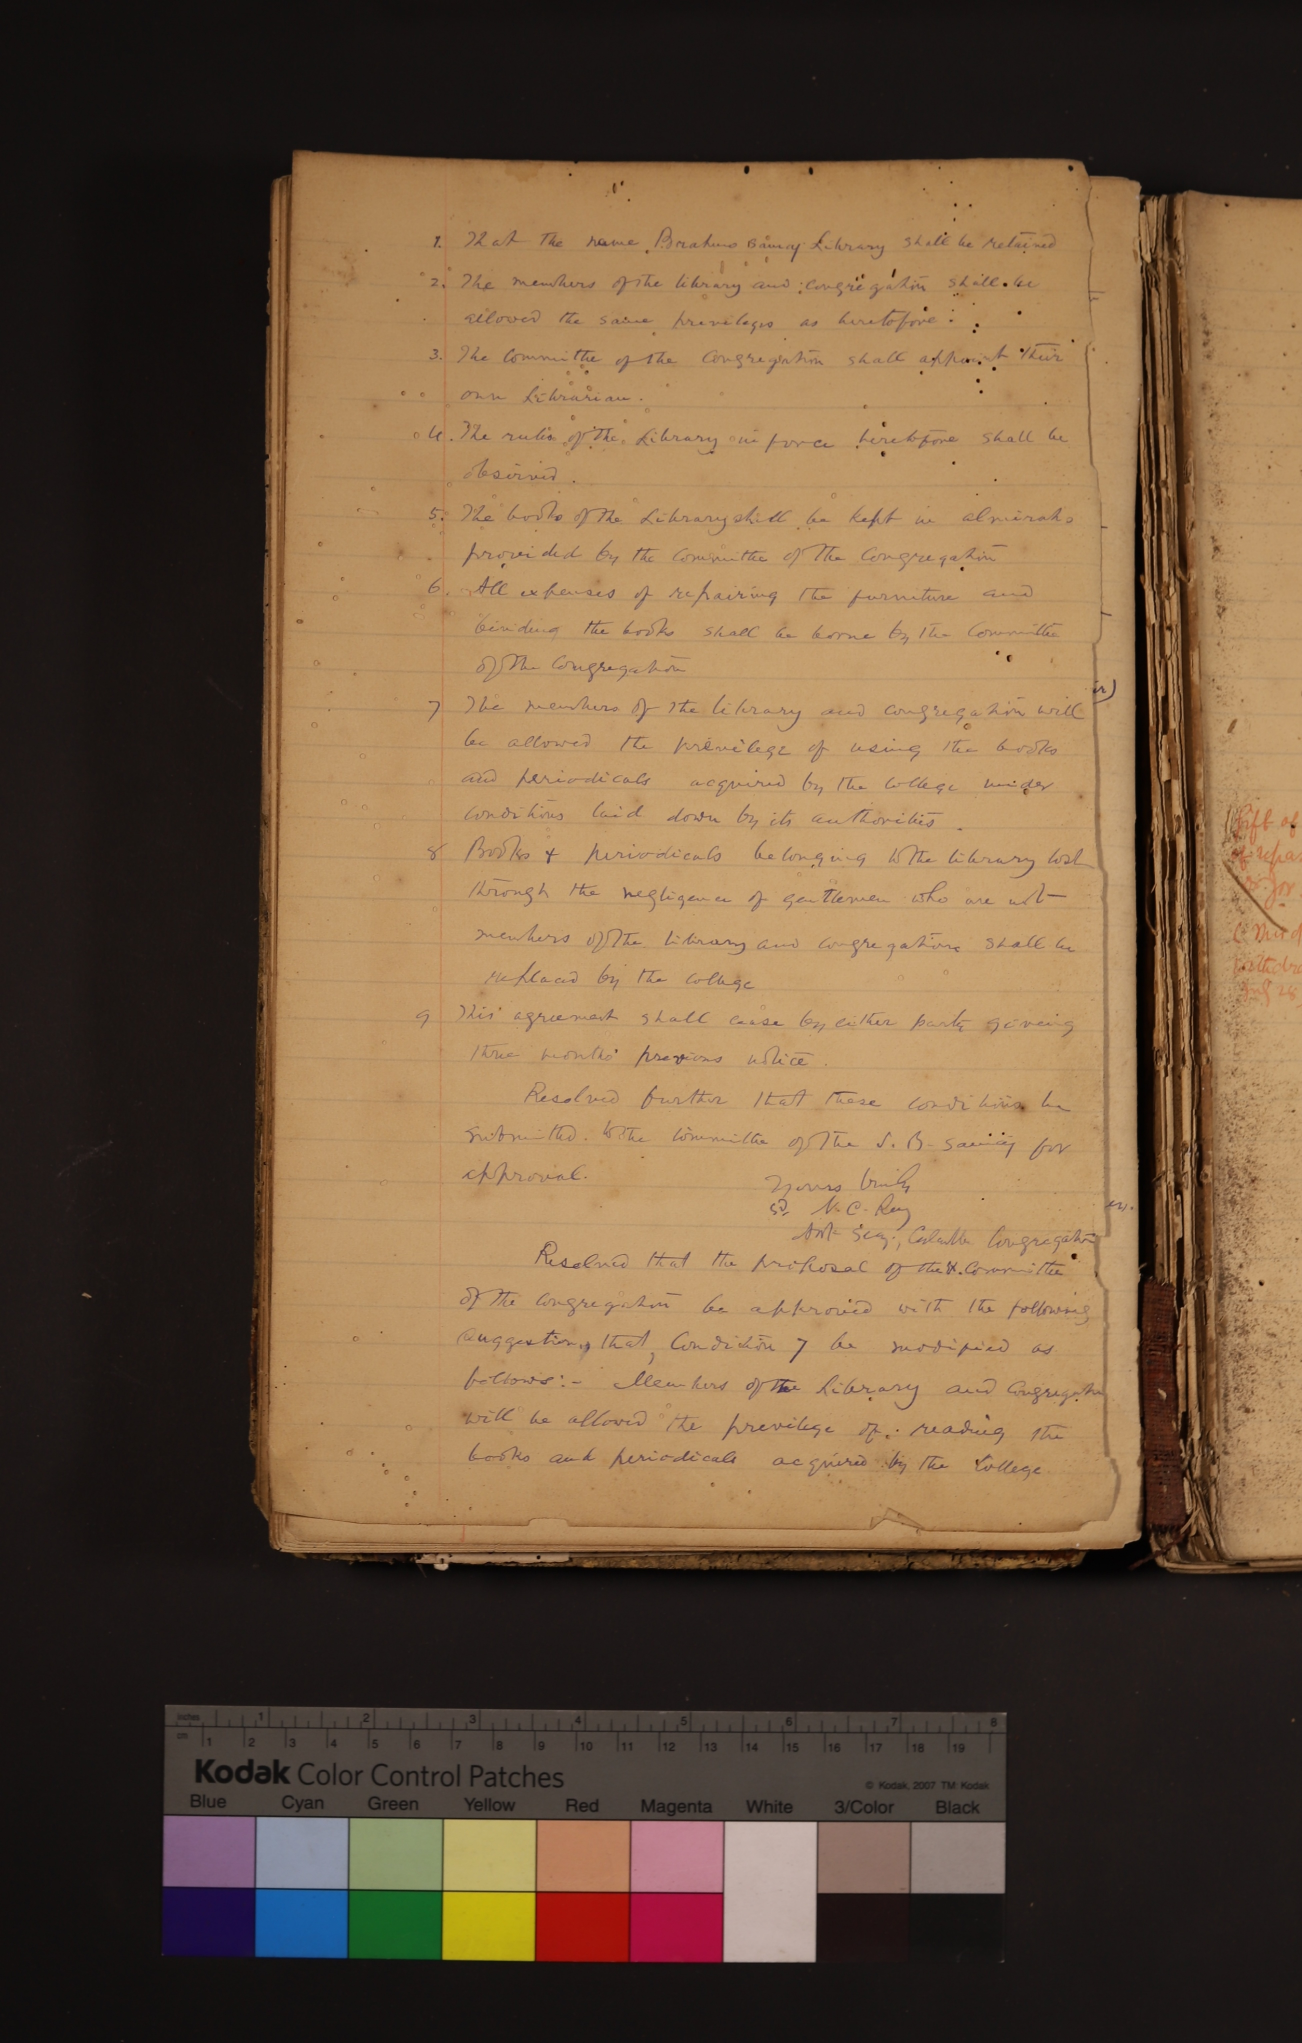 1. That the name Brahmo Samaj Library shall be retained
2. The members of the library and congregation shall be
allowed the same previleges as heretofore.
3. The Committee of the Congregation shall appoint their
own Librarian.
4. The rules of the Library in force heretofore shall be
observed.
5. The books of the Library shall be kept in almirahs
provided by the Committee of the Congregation
6. All expenses of repairing the furniture and
binding the books shall be borne by the Committee
of the Congregation
7 The members of the library and congregation will
be allowed the previlege of using the books
and periodicals acquired by the College under
conditions laid down by its authorities.
8 Books & periodicals belonging to the library lost
through the negligence of gentlemen who are not
members of the library and congregation shall be
replaced by the College
9 This agreement shall cease by either party giving
three months' previous notice.
Resolved further that these conditions be
submitted to the Committee of the S. B. Samaj for
approval.
Yours truly
Sd. N. C. Roy
Asst Secy., Calcutta Congregation
Resolved that the proposal of the Committee
of the Congregation be approved with the following
suggestion, that, Condition 7 be modified as
follows:- Members of the Library and Congregation
will be allowed the previlege of reading the
books and periodicals acquired by the College.
Gift of
of repa
& for
inches 1 2 3 4 5 6 7 8
cm 1 2 3 4 5 6 7 8 9 10 11 12 13 14 15 16 17 18 19
Kodak Color Control Patches
© Kodak, 2007 TM: Kodak
Blue Cyan Green Yellow Red Magenta White 3/Color Black